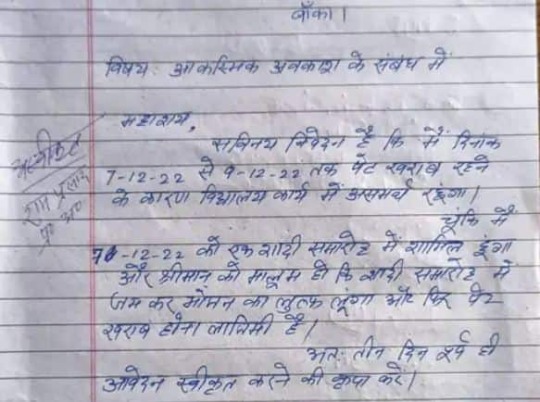 बाँका।
विषय: आकस्मिक अवकाश के संबंध में
महाशय,
सविनय निवेदन है कि मैं दिनांक
7-12-22 से 9-12-22 तक पेट खराब रहने
के कारण विद्यालय कार्य में असमर्थ रहूंगा।
चूंकि मैं
-12-22 को एक शादी समारोह में शामिल हूंगा
और श्रीमान को मालूम हो कि शादी समारोह में
जम कर भोजन का लुत्फ लूंगा और फिर पेट
खराब होना लाजिमी है।
अतः तीन दिन पूर्व ही
आवेदन स्वीकृत करने की कृपा करें।
राम प्रसाद
प्र० अ०